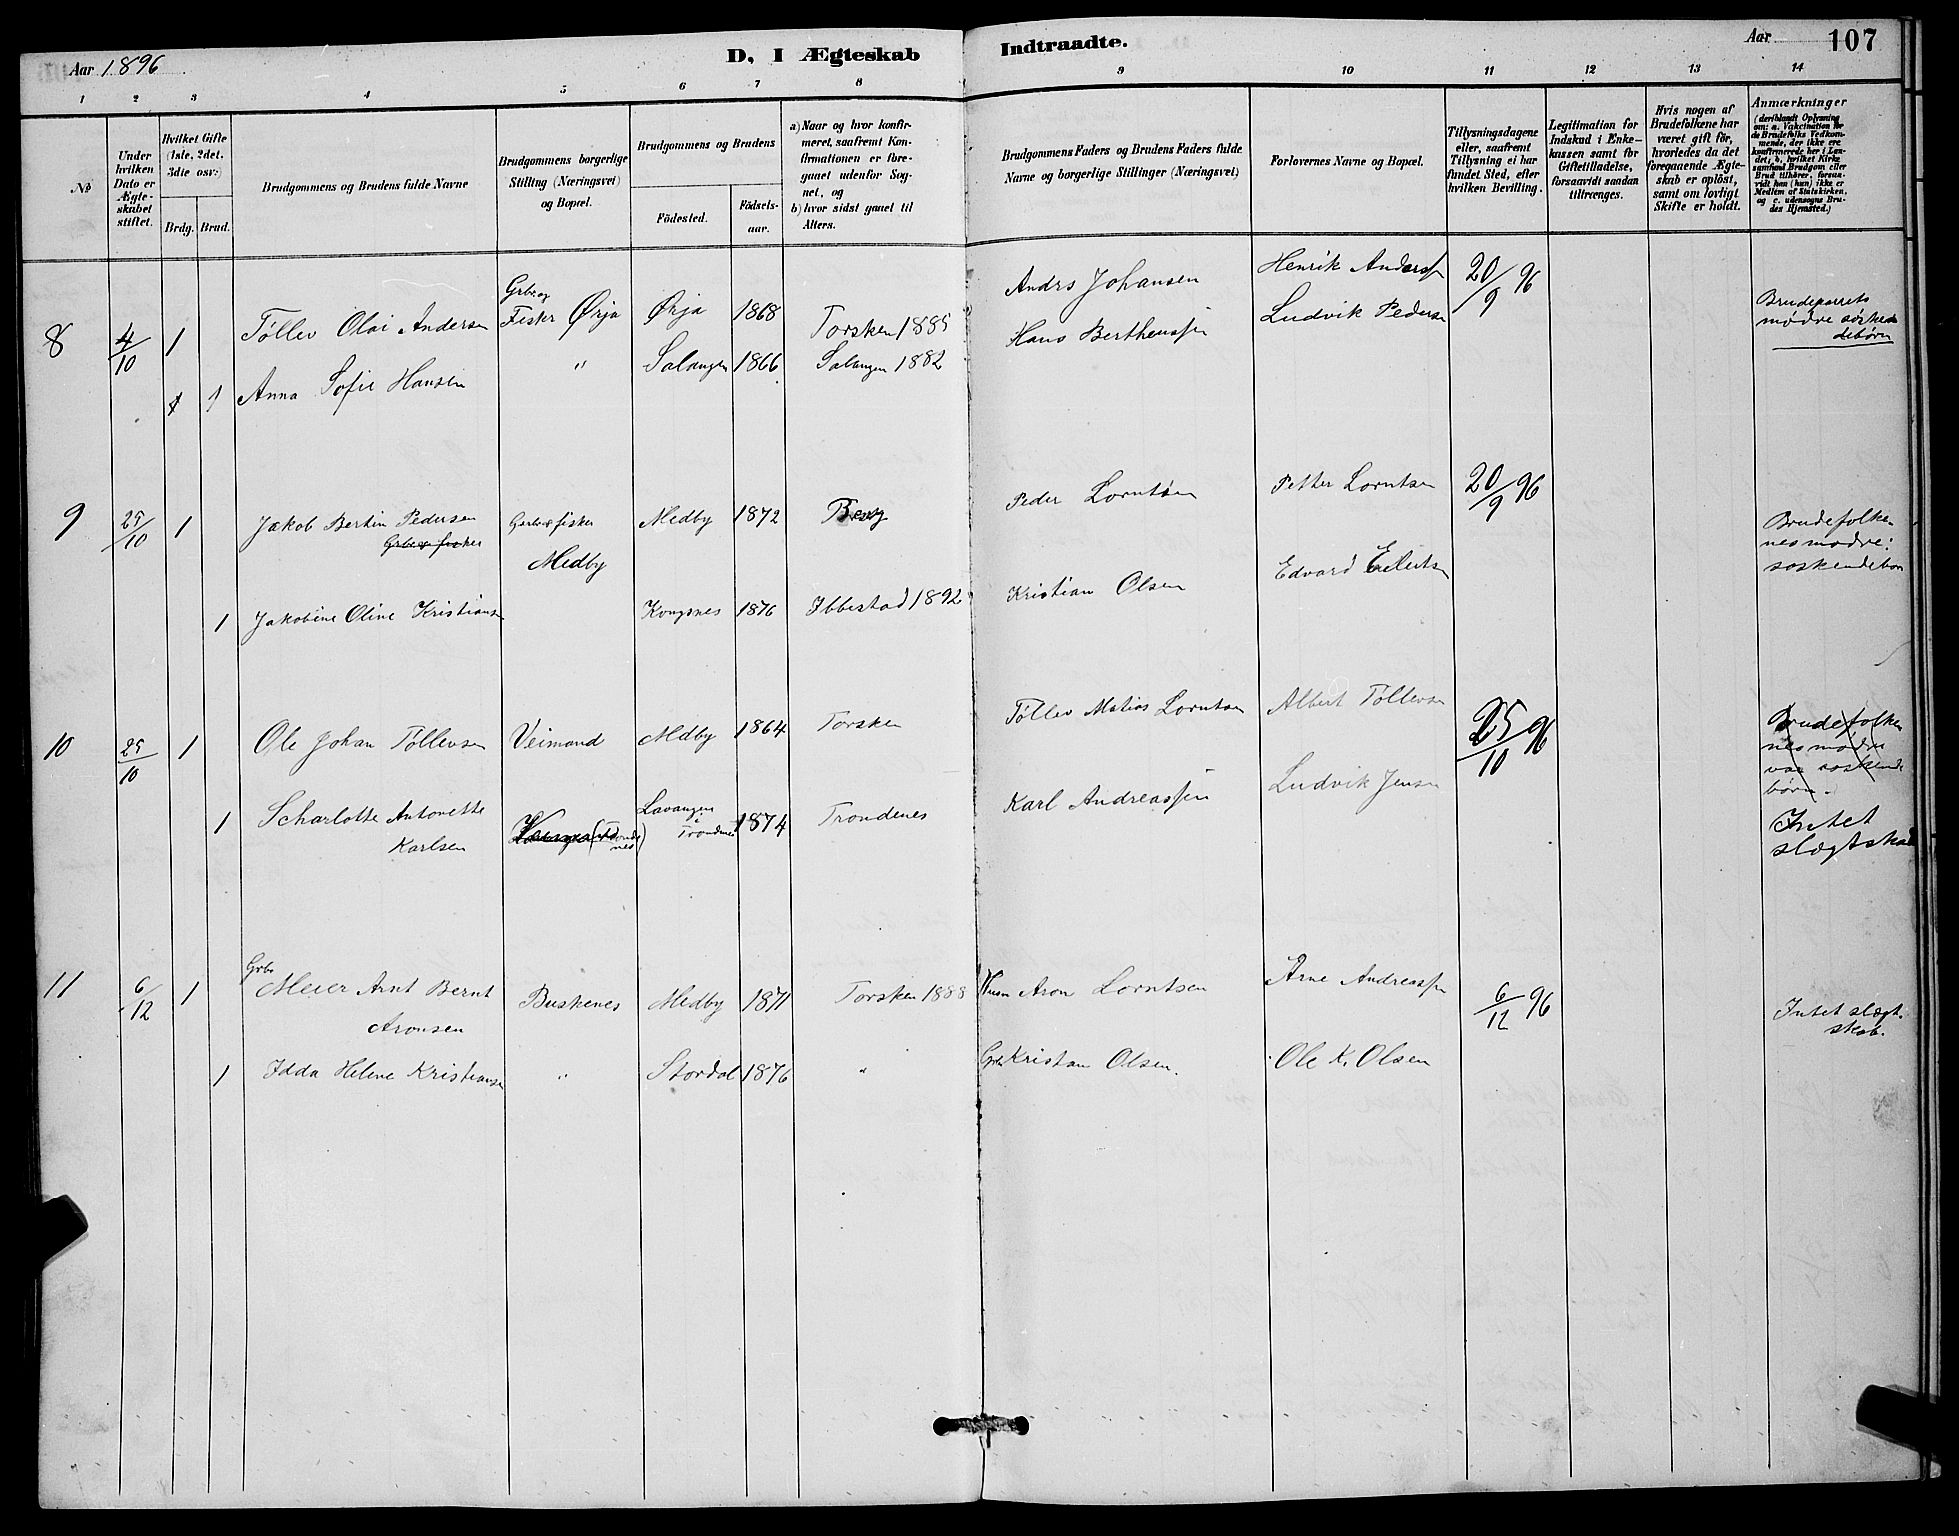 Aar 1896
D, I Ægteskab Indtraadte.
Aar 107
1 2 3 4 5 6 7 8 9 10 11 12 13 14
No
Under hvilken Dato er Ægteskabet stiftet.
Hvilket Gifte (1ste, 2det, 3die osv:)
Brdg. Brud.
Brudgommens og Brudens fulde Navne
Brudgommens borgerlige Stilling (Næringsvei) og Bopæl.
Brudgommens og Brudens
Födested.
Födselsaar.
a) Naar og hvor konfirmeret, saafremt Konfirmationen er foregaaet udenfor Sognet, og
b) hvor sidst gaaet til Alters.
Brudgommens Faders og Brudens Faders fulde Navne og borgerlige Stillinger (Næringsvei)
Forlovernes Navne og Bopæl.
Tillysningsdagene eller, saafremt Tillysning ei har fundet Sted, efter hvilken Bevilling.
Legitimation for Indskud i Enkekassen samt for Giftetilladelse, forsaavidt saadan tiltrænges.
Hvis nogen af Brudefolkene har været gift för, hvorledes da det foregaaende Ægteskab er oplöst, samt om lovligt Skifte er holdt.
Anmærkninger
(deriblandt Oplysning om: a. Vakcination for de Brudefolks Vedkommende, der ikke ere konfirmerede her i Landet, b. hvilket Kirkesamfund Brudgom eller Brud tilhörer, forsaavidt han (hun) ikke er Medlem af Statskirken, og c. udensogns Brudes Hjemsted.)
8 4/10 1 Töllev Olai Andersen Grbr og Fisker Ørja Ørja 1868 Torsken 1885 Andrs Johansen Henrik Anderss 20/9 96 Brudeparrets mödre söskendebörn
1 Anna Sofie Hansen " Salangen 1866 Salangen 1882 Hans Berthenssen Ludvik Pedersen
9 25/10 1 Jakob Bertin Pedersen Grbr og fisker Medby Medby 1872 Berg Peder Lorntsen Petter Lorntsen 20/9 96 Brudefolkenes mödre: söskendebørn
Grbr og fisker
1 Jakobine Oline Kristians Kongsnes 1876 Ibbestad 1892 Kristian Olsen Edvard Eilertsen
10 25/10 1 Ole Johan Töllevsen Veimand Medby 1864 Torsken Töllev Matias Lorntsen Albert Töllevsen 25/10 96 Brudefolkenes mödre var söskendebörn.
1 Scharlotte Antonette Karlsen (Trondenes) Lavangen i Trondenes 1874 Trondenes Karl Andreassen Ludvik Jensen Intet slægtskab
11 6/12 1 Grbr Meier Arnt Bernt Aronsen Buskenes Medby 1871 Torsken 1888 Husm Aron Lorntsen Arne Andreassen 6/12 96 Intet slægtskab.
1 Idda Helene Kristiansen " Stordal 1876 " Grbr Kristian Olsen. Ole K. Olsen